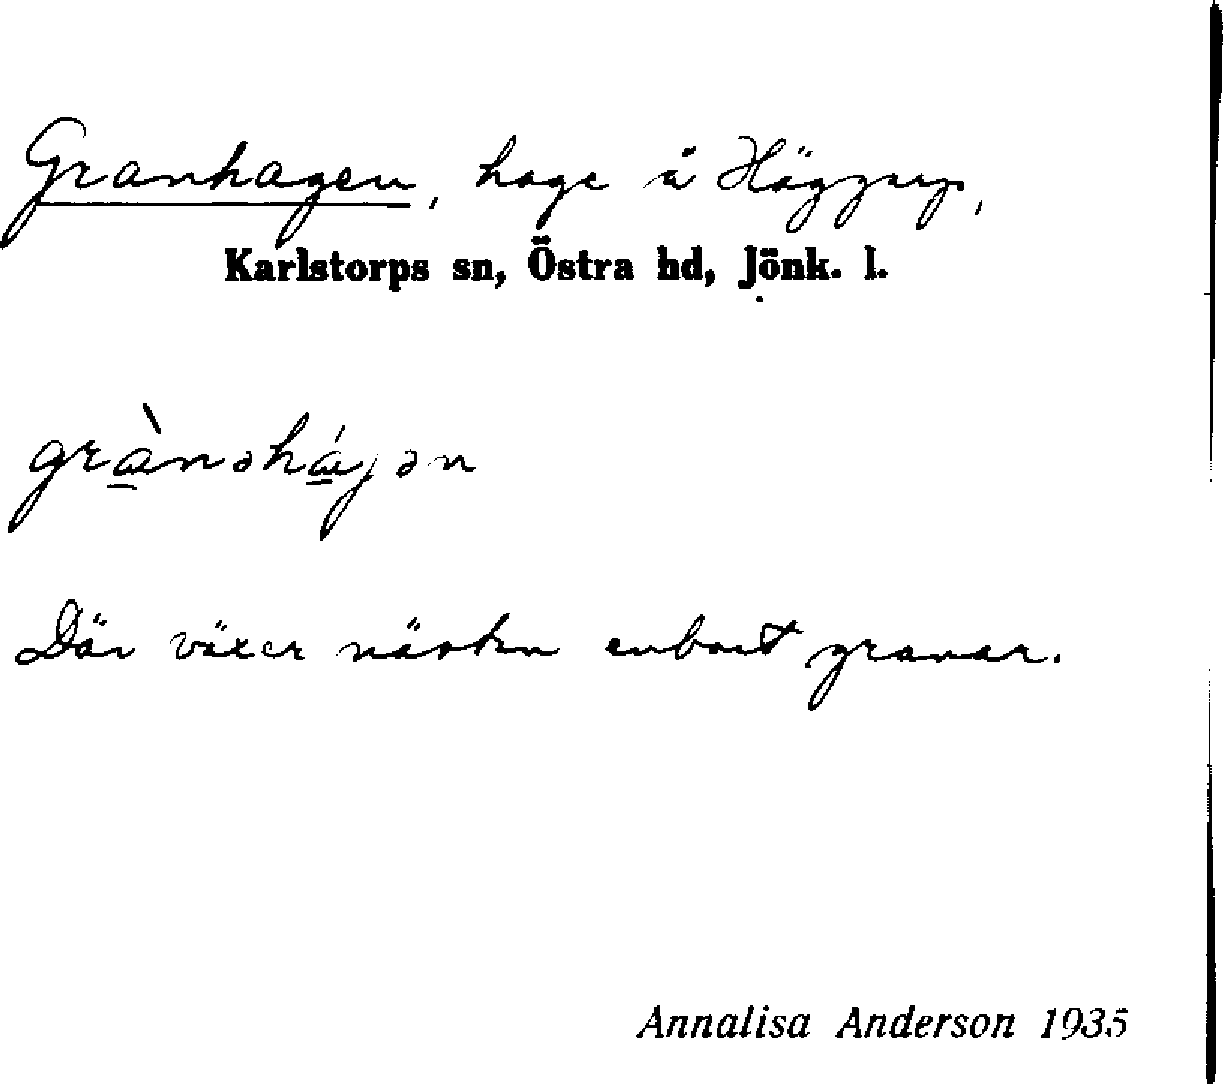 Granhagen, hage å Häggarp,
Karlstorps sn, Östra hd, Jönk. l.
grànəhájən
Där växer nästan enbart granar.
Annalisa Anderson 1935